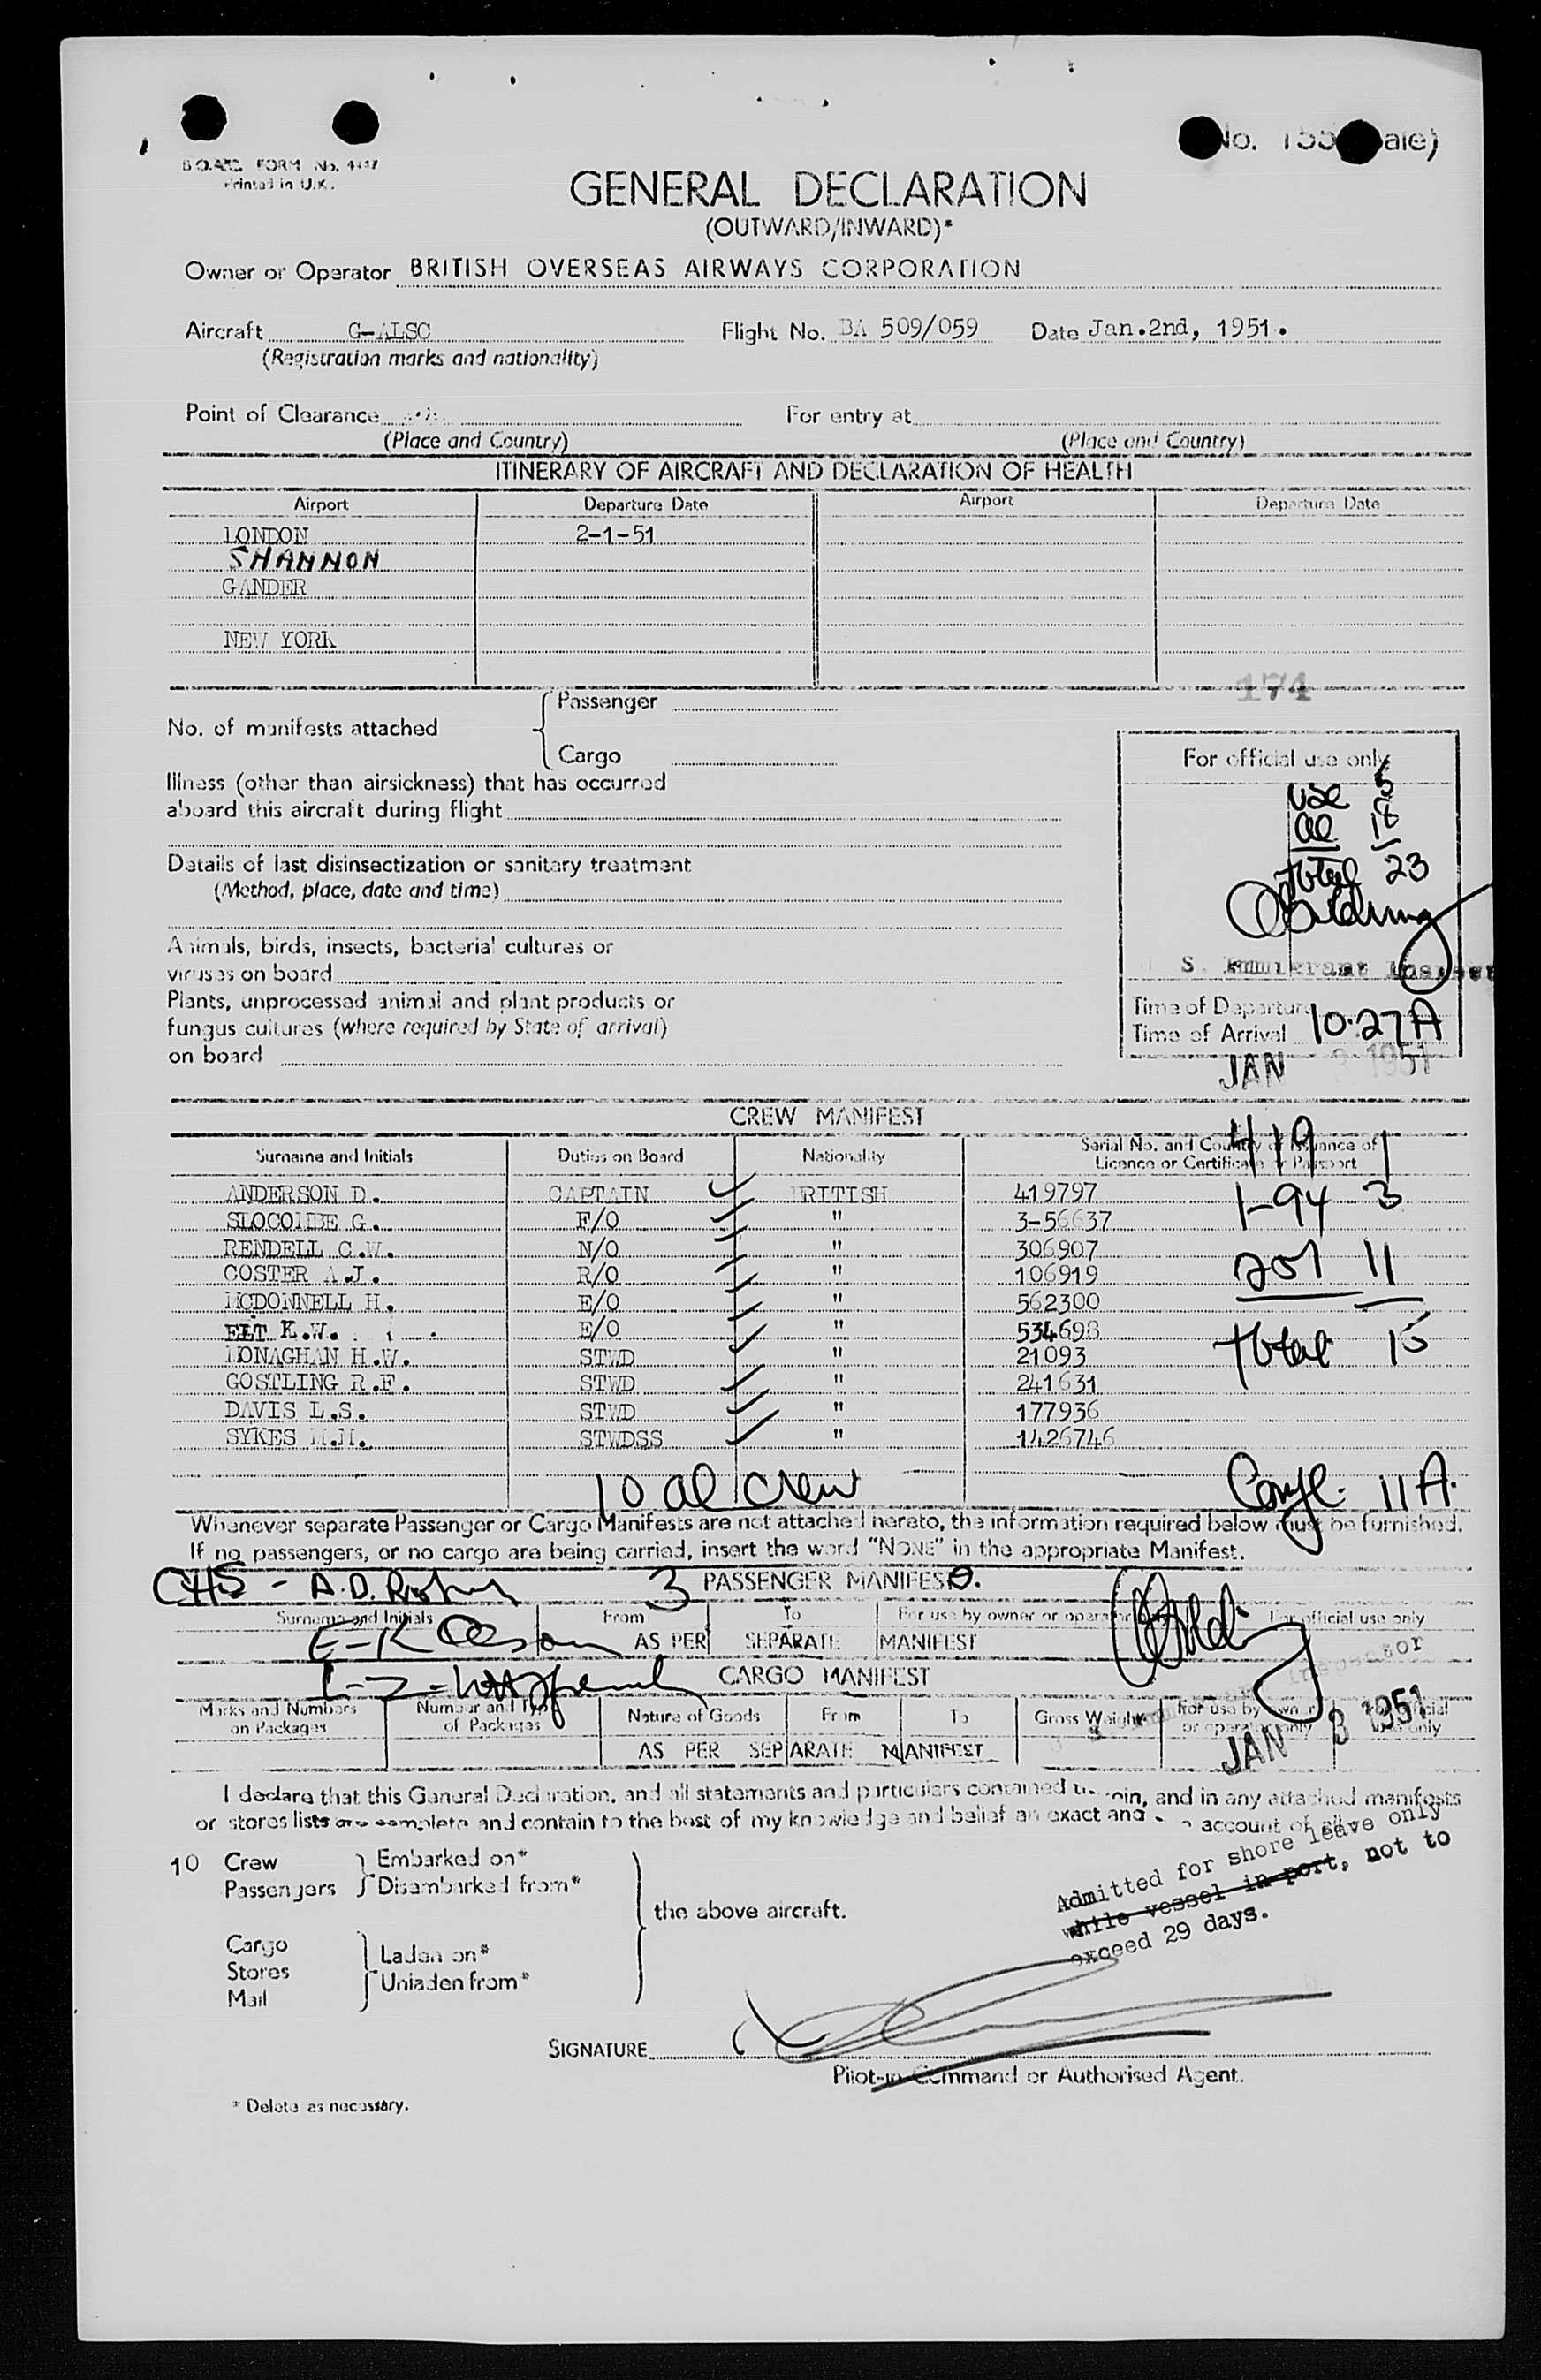 B.O.A.C. FORM No. 4447
Printed in U.K.
No. 155 ale)
GENERAL DECLARATION
(OUTWARD/INWARD)*
Owner or Operator BRITISH OVERSEAS AIRWAYS CORPORATION
Aircraft G-ALSC Flight No. BA 509/059 Date Jan.2nd, 1951.
(Registration marks and nationality)
Point of Clearance For entry at
(Place and Country) (Place and Country)
ITINERARY OF AIRCRAFT AND DECLARATION OF HEALTH
Airport Departure Date Airport Departure Date
LONDON 2-1-51
SHANNON
GANDER
NEW YORK
174
Passenger
No. of manifests attached
Cargo
For official use only
Illness (other than airsickness) that has occurred
aboard this aircraft during flight
USC 5
al 18
Total 23
Details of last disinsectization or sanitary treatment
(Method, place, date and time)
Animals, birds, insects, bacterial cultures or
viruses on board
S. Immigrant Inspector
Plants, unprocessed animal and plant products or
fungus cultures (where required by State of arrival)
on board
Time of Departure
Time of Arrival 10.27A
JAN 3 1951
CREW MANIFEST
Surname and Initials Duties on Board Nationality Serial No. and Country of Issuance of
Licence or Certificate or Passport
419 1
ANDERSON D. CAPTAIN BRITISH 419797
1-94 3
SLOCOMBE G. F/O " 3-56637
RENDELL C.W. N/O " 306907
COSTER A.J. R/O " 106919
257 11
MCDONNELL H. E/O " 562300
ELT K.W. E/O " 534698
Total 15
MONAGHAN H.W. STWD " 21093
GOSTLING R.F. STWD " 241631
DAVIS L.S. STWD " 177936
SYKES M.M. STWDSS " 1426746
10 al crew
11A.
Whenever separate Passenger or Cargo Manifests are not attached hereto, the information required below must be furnished.
If no passengers, or no cargo are being carried, insert the word "NONE" in the appropriate Manifest.
CHS - A.D. 3 PASSENGER MANIFEST
Surname and Initials From To For use by owner or operator For official use only
E-K Olsson
AS PER SEPARATE MANIFEST
Inspector
CARGO MANIFEST
Marks and Numbers on Packages Number and Type of Packages Nature of Goods From To Gross Weight For use by owner or operator only For official use only
AS PER SEPARATE MANIFEST
JAN 3 1951
I declare that this General Declaration, and all statements and particulars contained therein, and in any attached manifests
or stores lists are complete and contain to the best of my knowledge and belief an exact and account of all
10 Crew Embarked on*
Passengers Disembarked from*
the above aircraft.
Admitted for shore leave only
while vessel in port, not to
exceed 29 days.
Cargo
Stores
Mail
Laden on*
Unladen from*
SIGNATURE
Pilot-in-Command or Authorised Agent.
* Delete as necessary.